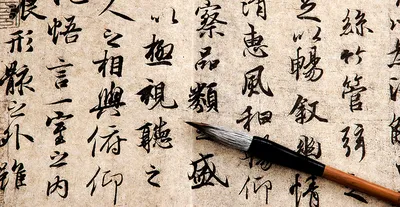 絲竹管弦之
以暢叙幽情
清惠風和暢仰
察品類之盛
以極視聽之
人之相與俯仰
悟言一室之內
形骸之外雖